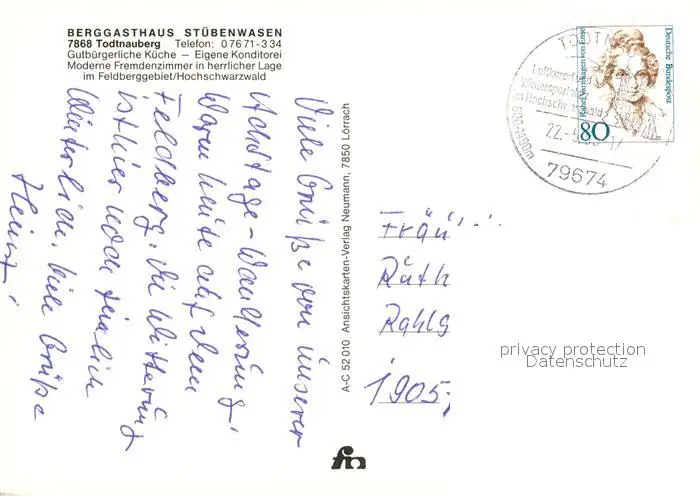 BERGGASTHAUS STÜBENWASEN
7868 Todtnauberg Telefon: 07671-334
Gutbürgerliche Küche — Eigene Konditorei
Moderne Fremdenzimmer in herrlicher Lage
im Feldberggebiet/Hochschwarzwald
Viele Grüße von unserer
Achttage-Wanderung!
Waren heute auf dem
Feldberg. Die Witterung
ist hier noch ziemlich
Winterlich. Viele Grüße
Heinz!
A-C 52 010 Ansichtskarten-Verlag Neumann, 7850 Lörrach
TODTN
Luftkurort und
Wintersportplatz
im Hochschwarzwald
79674
Rahel Varnhagen von Ense
Deutsche Bundespost
80
Fräu
Ruth
Rahlg
1905
privacy protection
Datenschutz